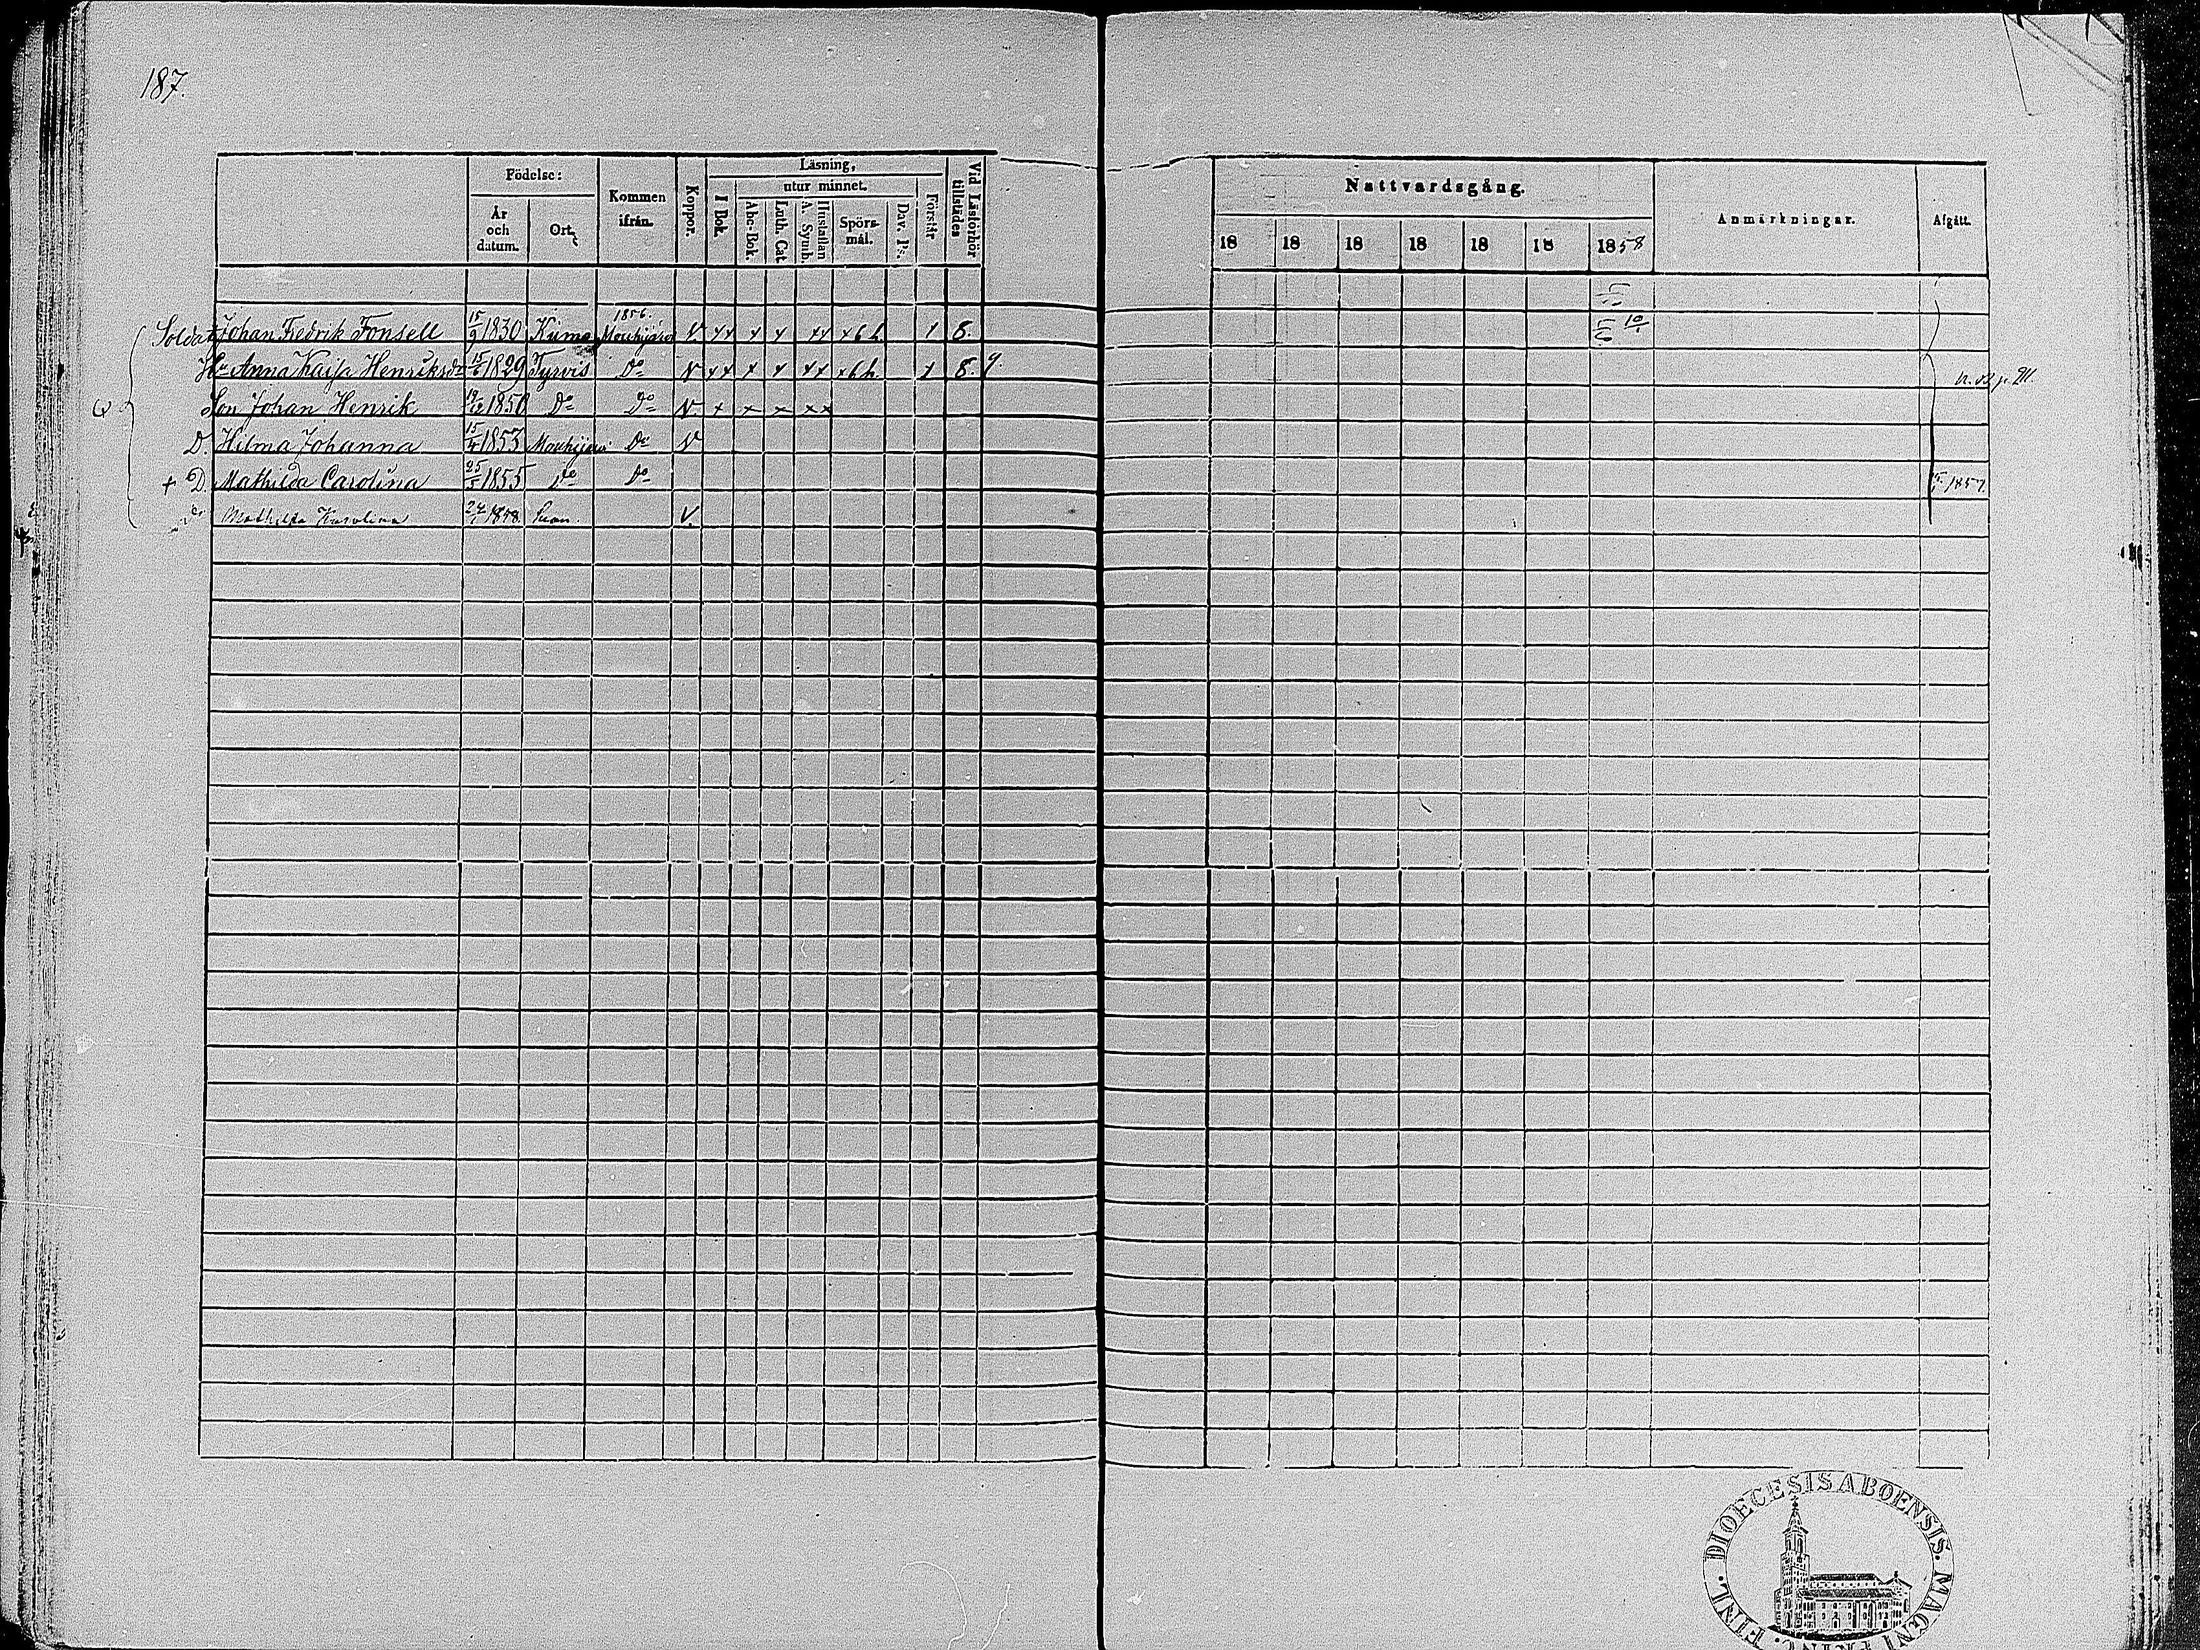 187.
Födelse: Kommen ifrån. Koppor. Läsning, Vid Läsförhör tillstädes
År och datum. Ort. I Bok. utur minnet. Förstår
Abc-Bok. Luth. Cat. Hustaflan A. Symb. Spörsmål. Dav. Ps.
Soldat Johan Fredrik Fonsell 15/9 1830 Kiimo 1856. Mouhijärvi V. xx x x xx x6h. 1 8.
Hu Anna Kaisa Henriksdr 15/6 1829 Tyrvis Do V xx x x xx x6h. 1 8. 9.
Son Johan Henrik 19/12 1850 Do Do V. x x x xx
D. Hilma Johanna 15/4 1853 Mouhijärvi Do V
+ D. Mathilda Carolina 25/5 1855 Do Do
Mathilda Karolina 24/1 1858 V.
Nattvardsgång. Anmärkningar. Afgått.
18 18 18 18 18 18 1858
10/1
p. 211.
1857
DIOECESIS ABOENSIS. MAGNI PRINC. FINL.